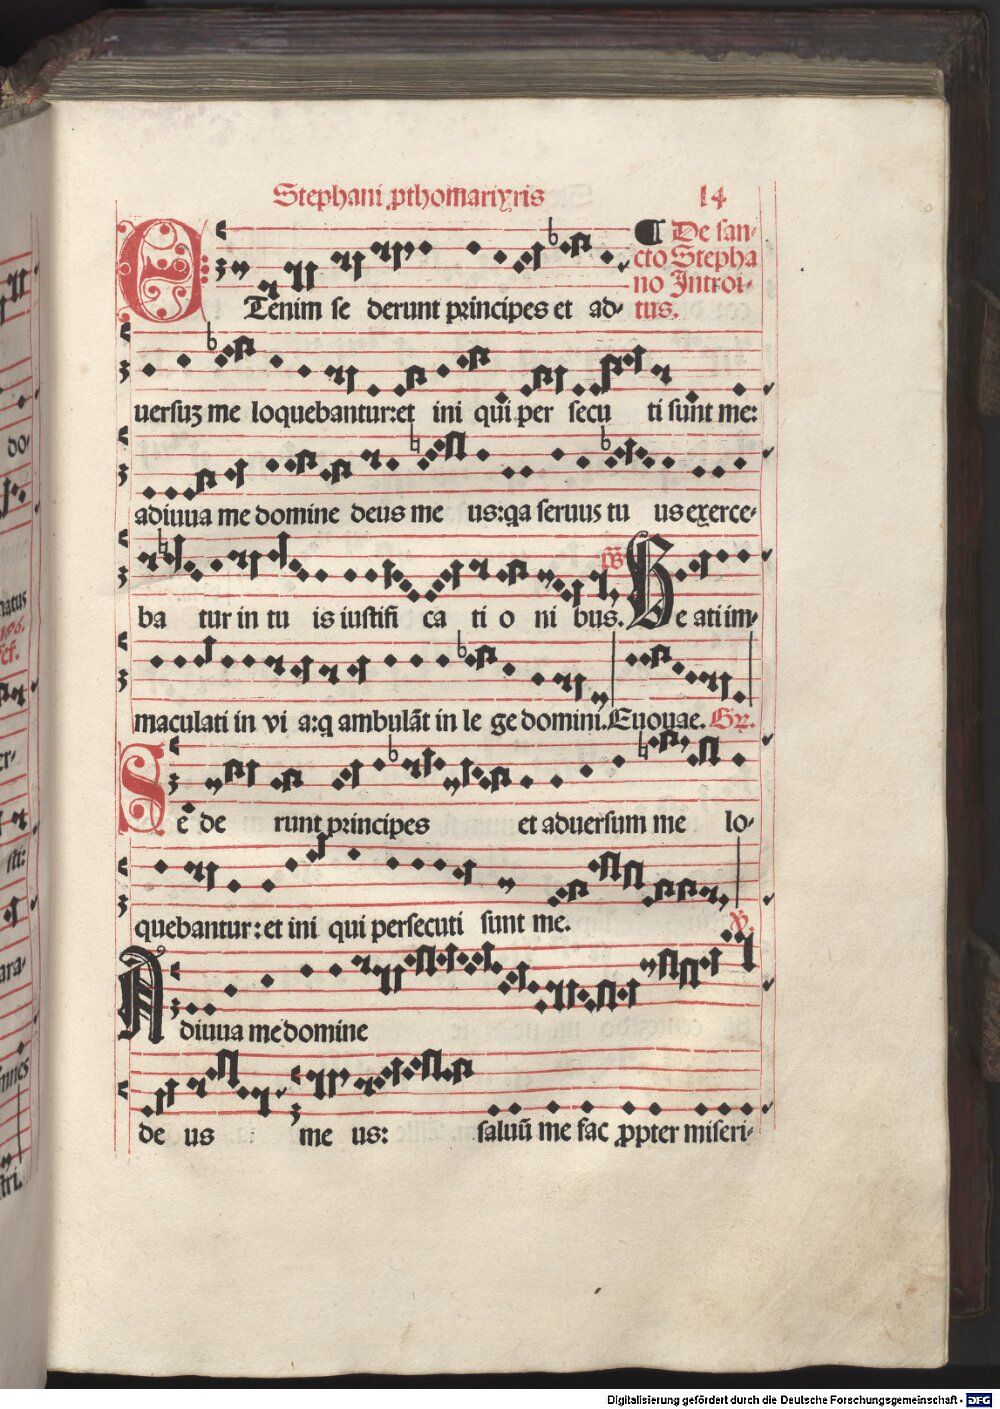 Stephani ꝓthomartyris 14
¶ De san-
cto Stepha
no Introi-
tus.
ETenim se derunt principes et ad-
uersuʒ me loquebantur: et ini qui per secu ti sunt me:
adiuua me domine deus me us: qa seruus tu us exerce-
ba tur in tu is iustifi ca ti o ni bus. ps Be ati im-
maculati in vi a: q ambulāt in le ge domini. Euouae. Gr.
Se de runt principes et aduersum me lo-
quebantur: et ini qui persecuti sunt me. V.
Adiuua me domine
de us me us: saluū me fac ꝓpter miseri-
do-
natus
196.
er-
sti:
ara-
omnes
stri.
Digitalisierung gefördert durch die Deutsche Forschungsgemeinschaft - DFG